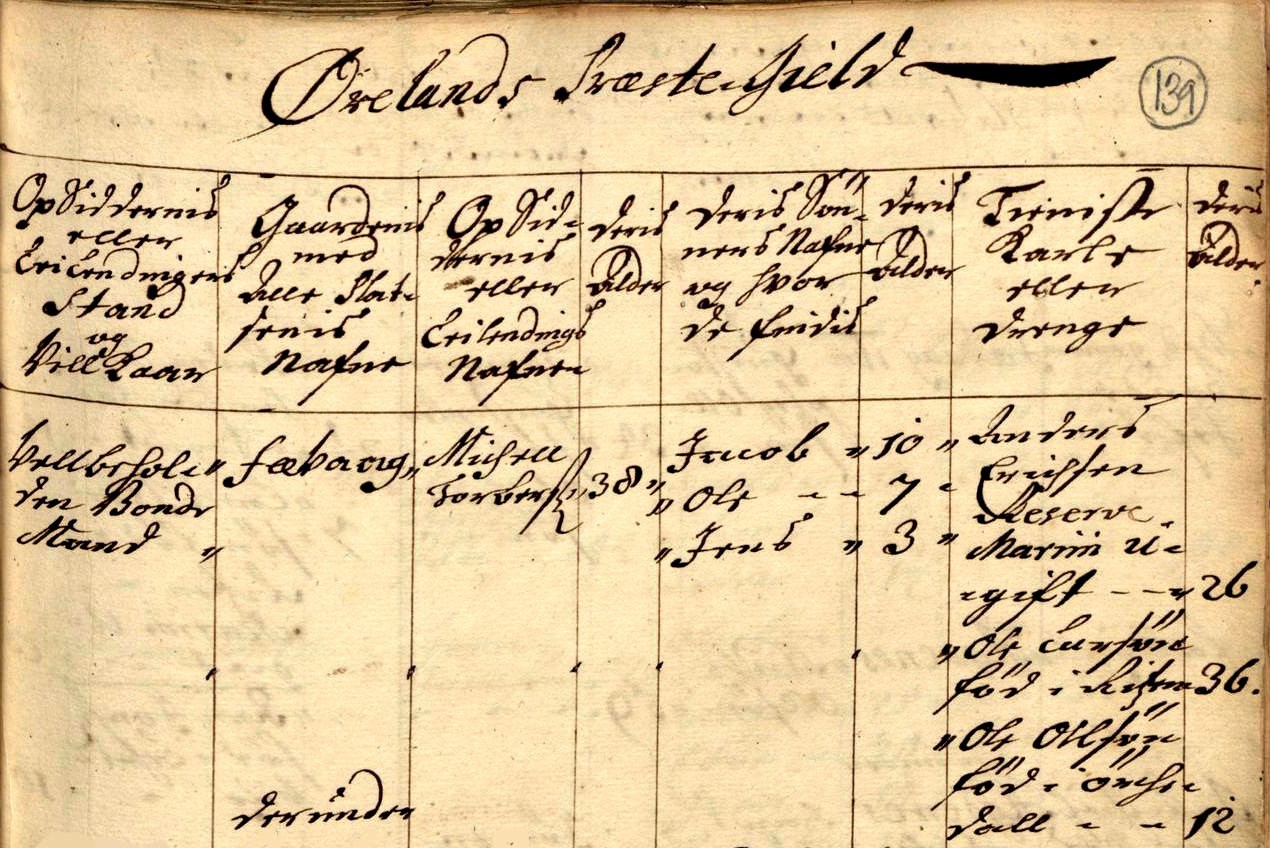 Ørelands Præstegield
139
OpSiddernis
eller
Leilendingers
Stand
og
Vill Kaar
Gaardenis
med
Alle Plat-
senis
Nafne
OpSid-
dernis
eller
Leilendings
Nafne
deris
Alder
deris Sön-
ners Nafne
og hvor
de findis
deris
Alder
Tieniste
Karle
eller
drenge
deris
Alder
Velbehol-
den Bonde
Mand
Michell
Torbers
38
Jacob 10
Ole 7
Jens 3
Anders
Erichsen
Reserve
Marin U-
gift 26
Ole Larsön
föd i Rissen 36.
Ole Ollsön
föd i Örche
dall 12
derunder